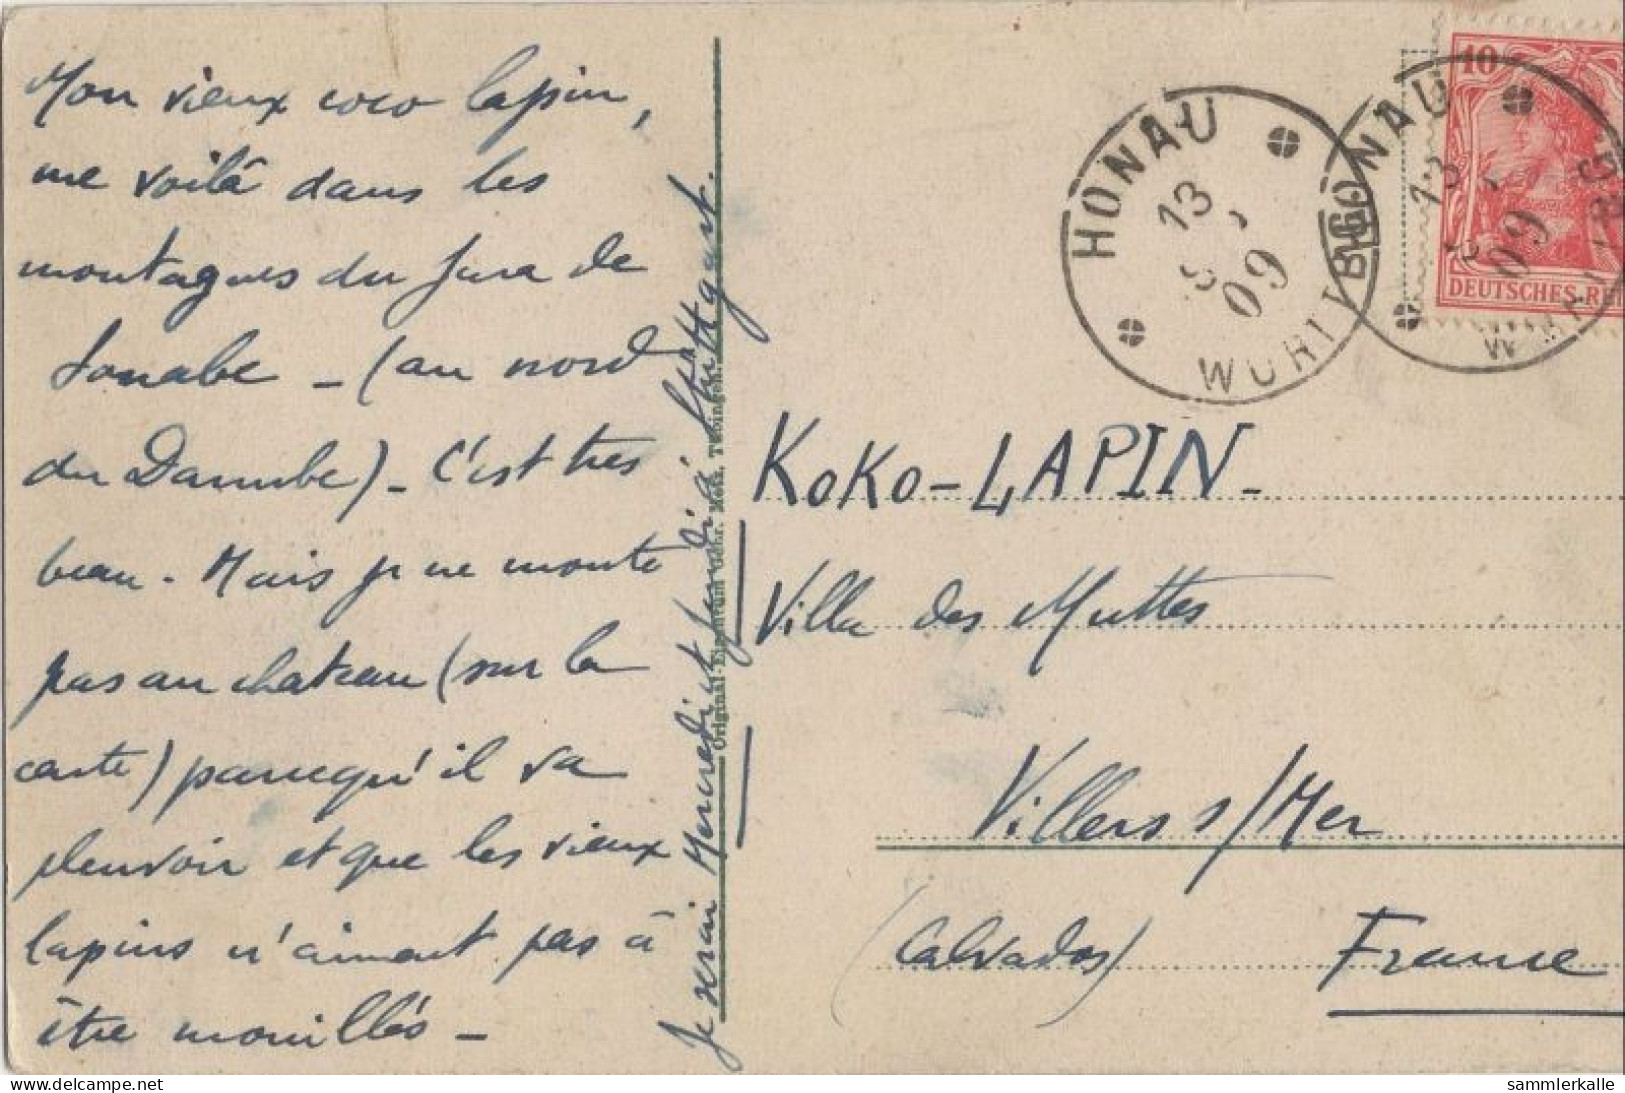 Mon vieux coco lapin,
me voilà dans les
montagnes du Jura de
Souabe - (au nord
du Danube) - C'est très
beau - Mais je ne monte
pas au château (sur la
carte) parcequ'il va
pleuvoir et que les vieux
lapins n'aiment pas à
être mouillés -
Je serai Mercredi et jeudi à Stuttgart.
Original-Eigentum Gebr. Metz, Tübingen.
HONAU
13
09
WÜRTTBG
HONAU
13
09
WÜRTTBG.
10
DEUTSCHES REI
KOKO-LAPIN-
Villa des Muttes
Villers s/Mer
(Calvados) France
delcampe.net
sammlerkalle